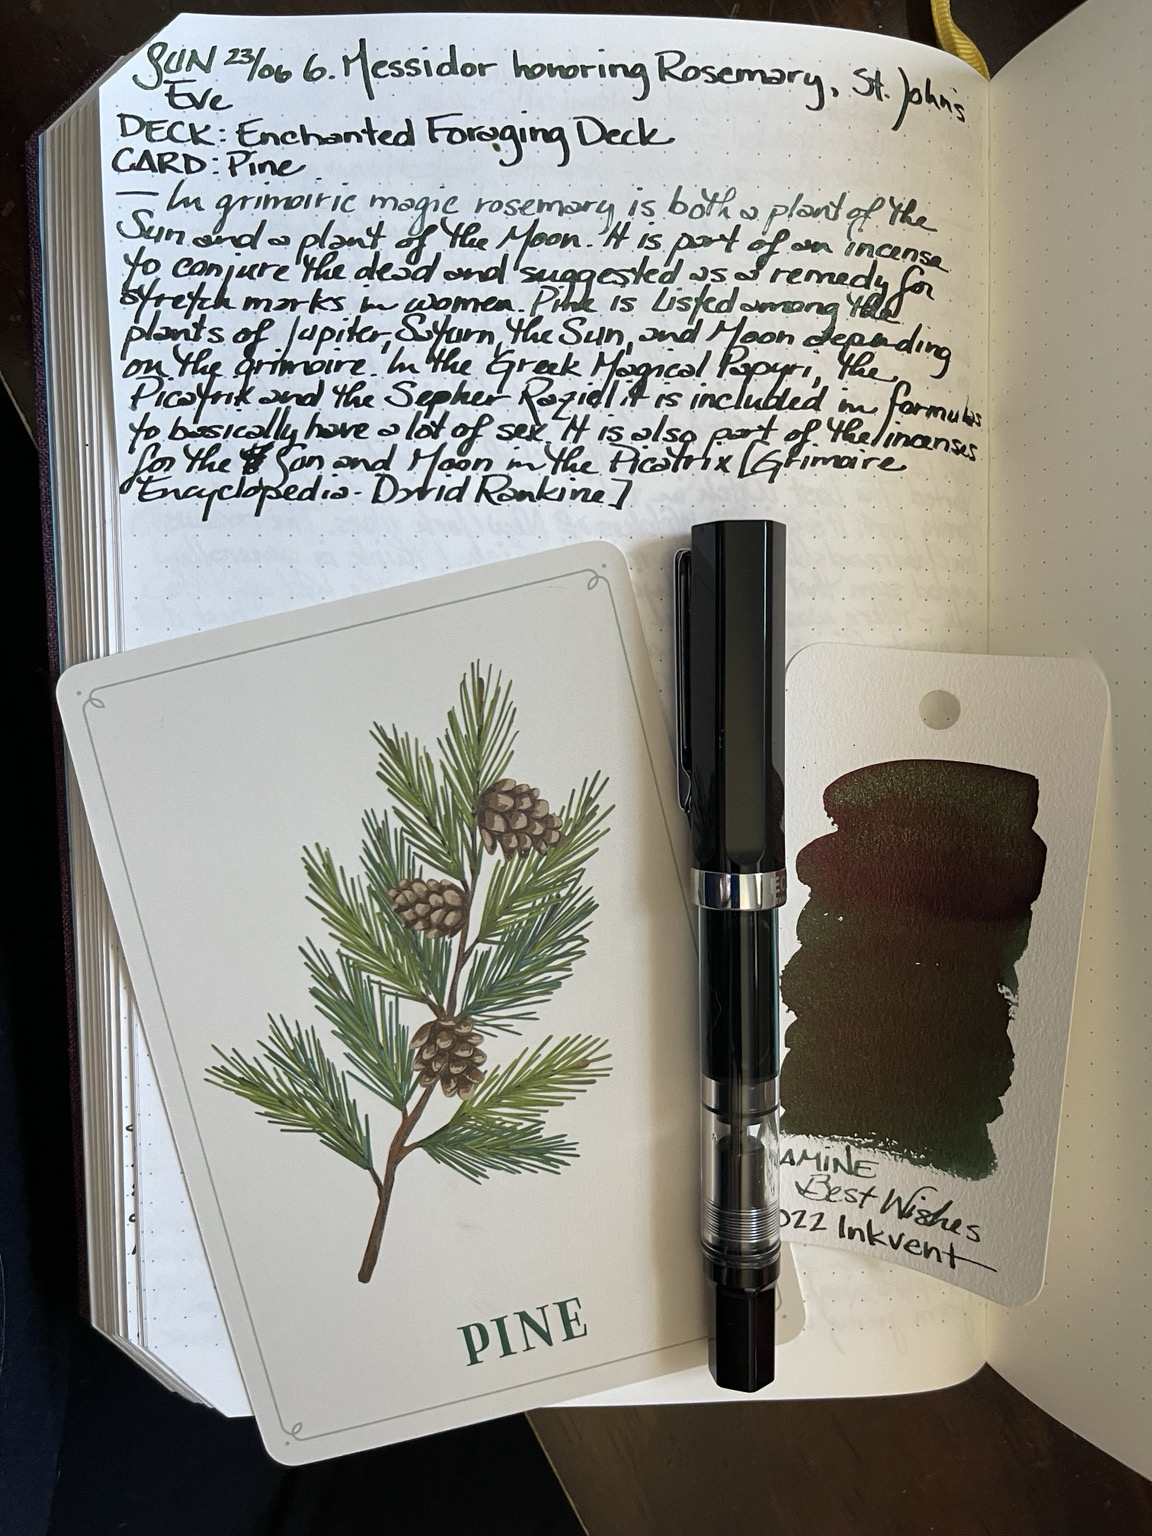 SUN 23/06 6. Messidor honoring Rosemary, St. John's
Eve
DECK: Enchanted Foraging Deck
CARD: Pine
— In grimoiric magic rosemary is both a plant of the
Sun and a plant of the Moon. It is part of an incense
to conjure the dead and suggested as a remedy for
stretch marks in women. Pine is listed among the
plants of Jupiter, Saturn, the Sun, and Moon depending
on the grimoire. In the Greek Magical Papyri, the
Picatrix and the Sepher Raziel it is included in formulas
to basically have a lot of sex. It is also part of the incenses
for the Sun and Moon in the Picatrix [Grimoire
Encyclopedia - David Rankine]
PINE
AMINE
Best Wishes
022 Inkvent